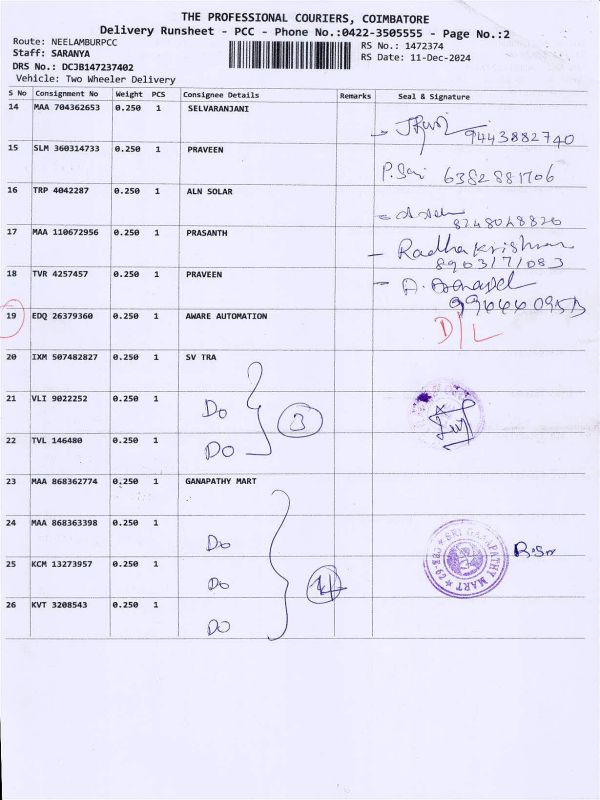 THE PROFESSIONAL COURIERS, COIMBATORE
Delivery Runsheet - PCC - Phone No.:0422-3505555 - Page No.:2
Route: NEELAMBURPCC
RS No.: 1472374
Staff: SARANYA
RS Date: 11-Dec-2024
DRS No.: DCJB147237402
Vehicle: Two Wheeler Delivery
S No Consignment No Weight PCS Consignee Details Remarks Seal & Signature
14 MAA 704362653 0.250 1 SELVARANJANI
9443882740
15 SLM 360314733 0.250 1 PRAVEEN
6382881706
16 TRP 4042287 0.250 1 ALN SOLAR
8248048826
17 MAA 110672956 0.250 1 PRASANTH
Radhakrishnan
8903171083
18 TVR 4257457 0.250 1 PRAVEEN
19 EDQ 26379360 0.250 1 AWARE AUTOMATION
D/L
20 IXM 507482827 0.250 1 SV TRA
21 VLI 9022252 0.250 1 Do 3
22 TVL 146480 0.250 1 Do
23 MAA 868362774 0.250 1 GANAPATHY MART
24 MAA 868363398 0.250 1 Do
SRI GANAPATHY MART
25 KCM 13273957 0.250 1 Do 4
26 KVT 3208543 0.250 1 Do